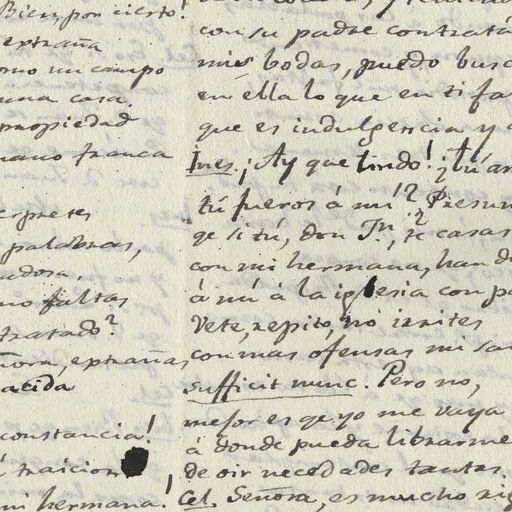 Bien, por cierto!
extraña
como un campo
una casa
propiedad
mano franca
erpretes
palabras,
adosa.
no faltas
tratado?
ñora, extrañas
acida
constancia!
traicion
mi hermana!
con su padre contratá
mis bodas, puedo busc
en élla lo que en ti fa
que es indulgencia y
Ines. ¡Ay que lindo! ¿Tú
tú fueros á mi? Presum
qe si tú, don Jn, te casas
con mi hermana, han d
á mi a la iglesia con p
Vete, repito, no irrites
con mas ofensas mi sa
sufficit nunc. Pero no,
mejor es qe yo me vaya
á donde pueda librarme
de oir necedades tantas.
Cel. Señora, es mucho